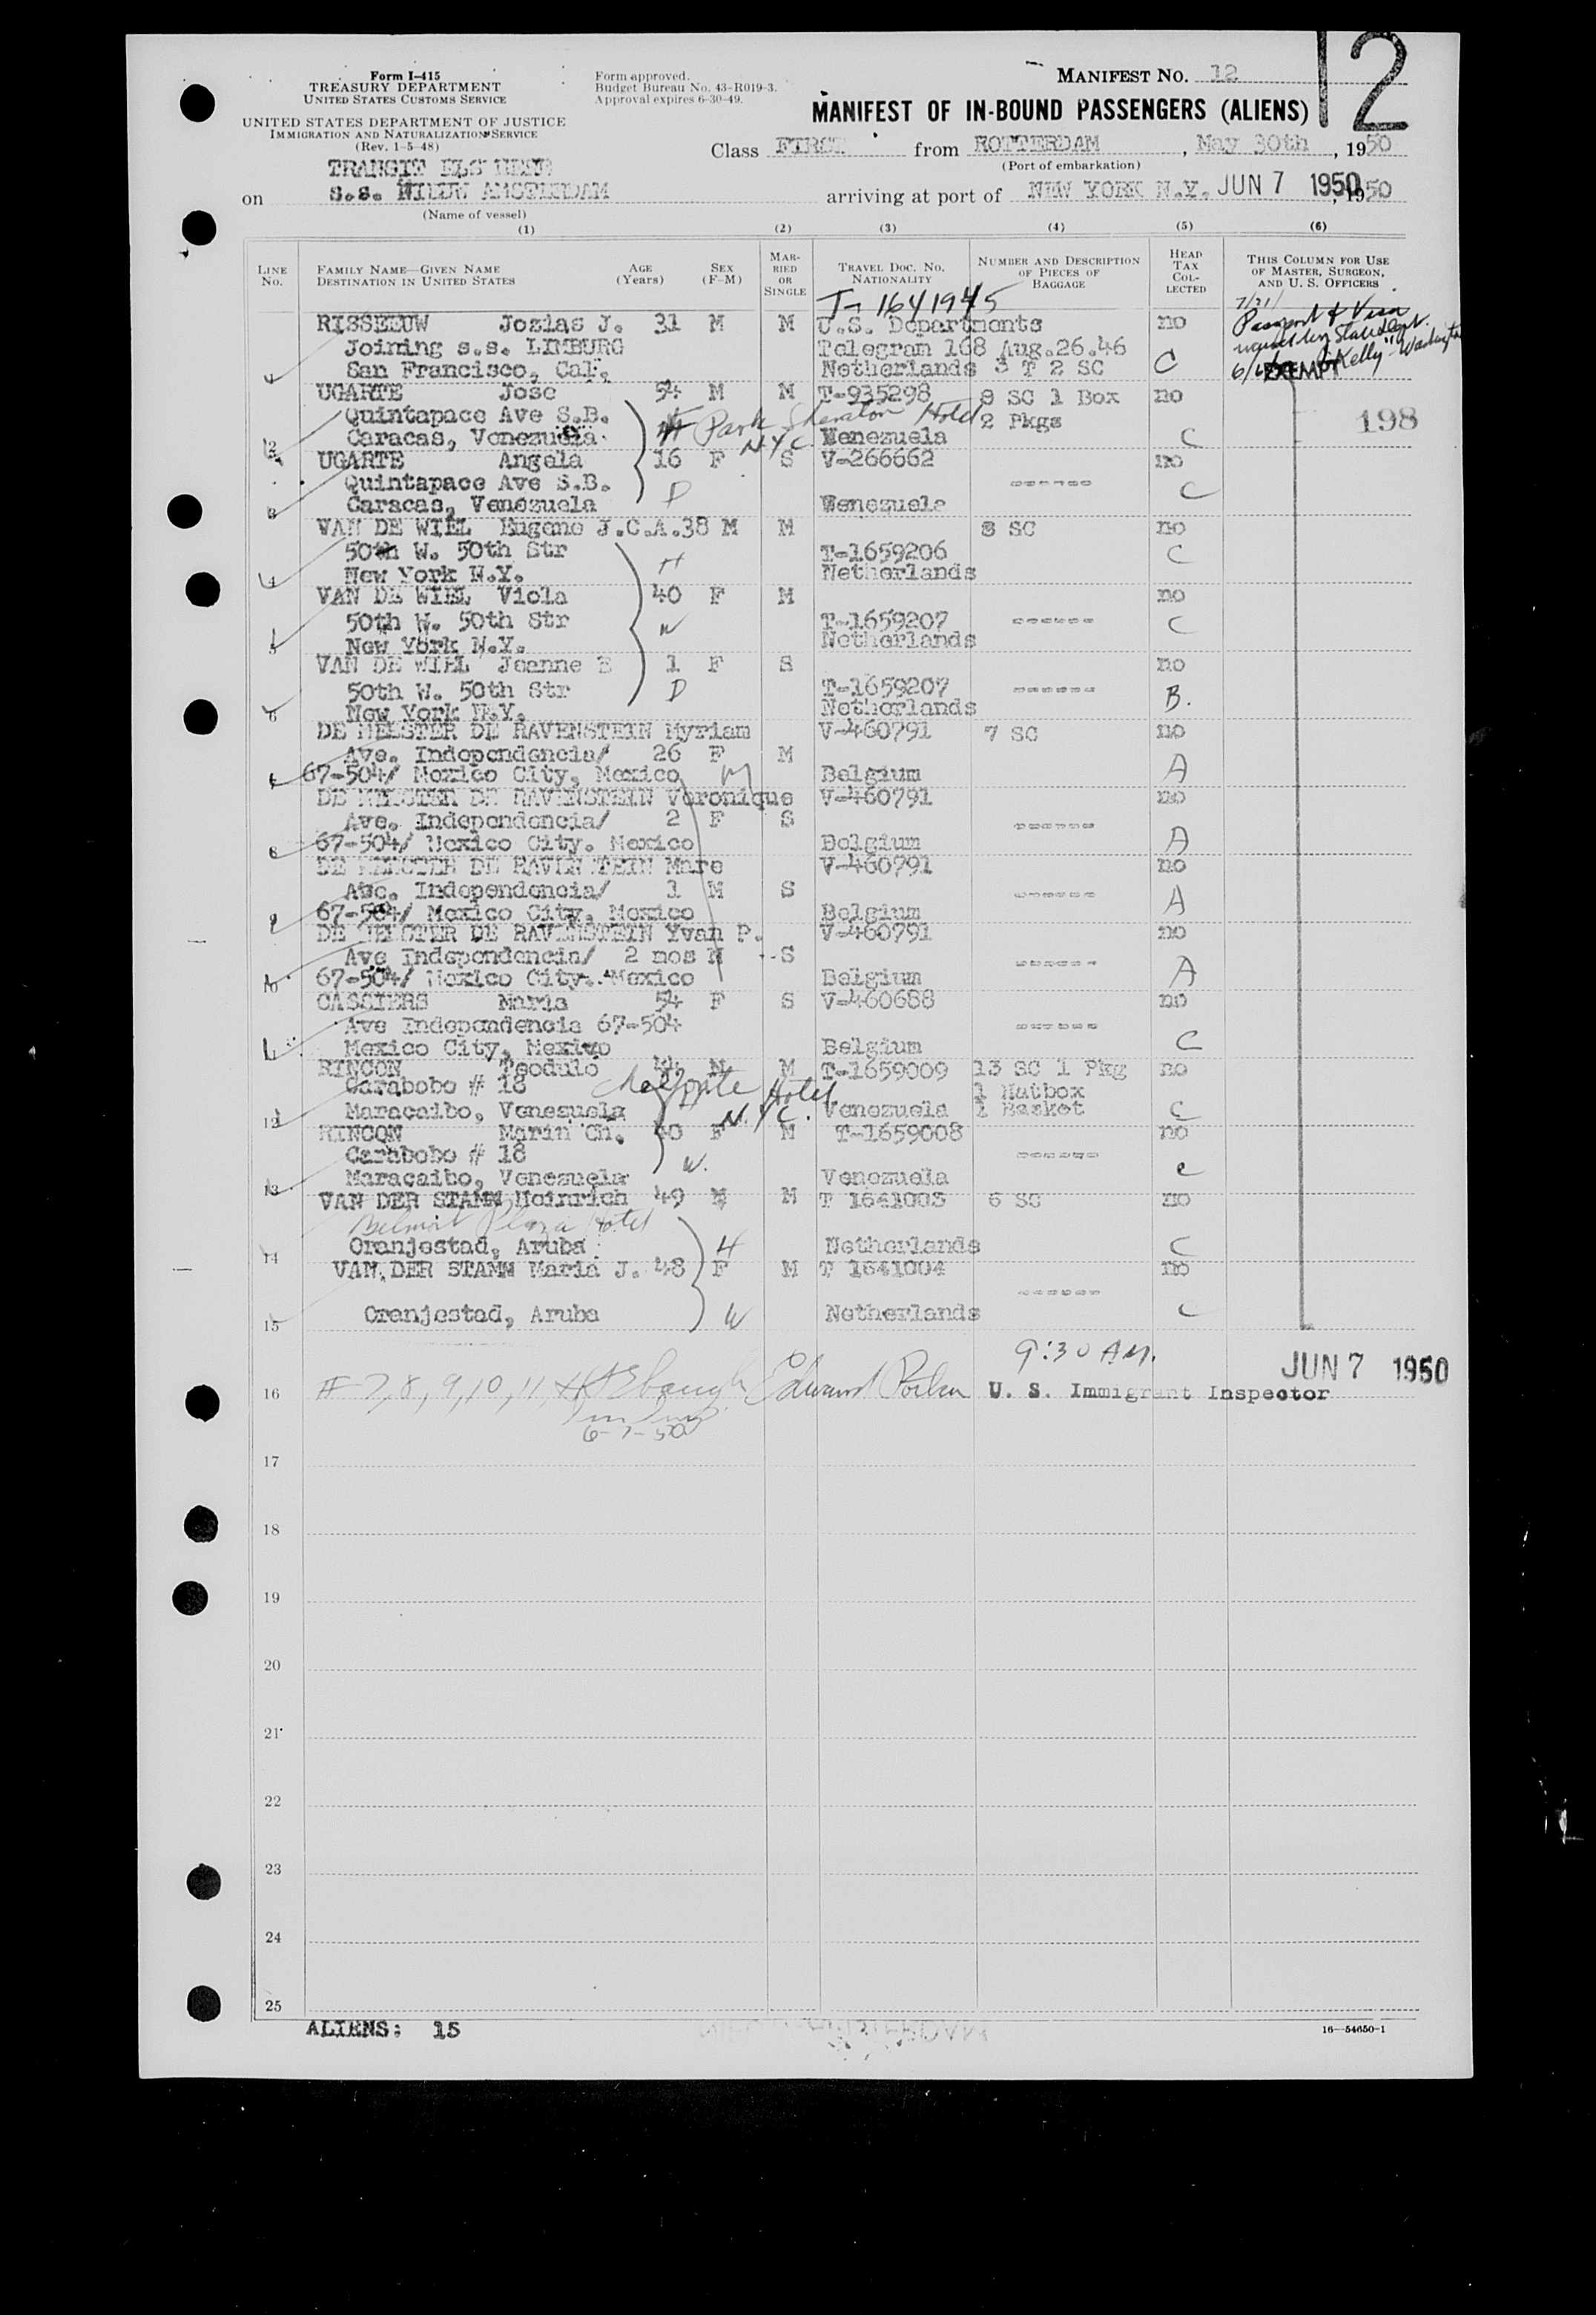 12
Form I-415
TREASURY DEPARTMENT
UNITED STATES CUSTOMS SERVICE
UNITED STATES DEPARTMENT OF JUSTICE
IMMIGRATION AND NATURALIZATION SERVICE
(Rev. 1-5-48)
Form approved.
Budget Bureau No. 43-R019-3.
Approval expires 6-30-49.
MANIFEST NO. 12
MANIFEST OF IN-BOUND PASSENGERS (ALIENS)
Class FIRST from ROTTERDAM, May 30th, 1950
(Port of embarkation)
TRANSIT
on s.s. NIEUW AMSTERDAM arriving at port of NEW YORK N.Y. JUN 7 1950, 1950
(Name of vessel)
(1) (2) (3) (4) (5) (6)
LINE No. FAMILY NAME—GIVEN NAME DESTINATION IN UNITED STATES AGE (Years) SEX (F-M) MARRIED OR SINGLE TRAVEL DOC. NO. NATIONALITY NUMBER AND DESCRIPTION OF PIECES OF BAGGAGE HEAD TAX COLLECTED THIS COLUMN FOR USE OF MASTER, SURGEON, AND U. S. OFFICERS
T-1641945 7/21/
RISSEEUW Jozias J. 31 M M U.S. Departments no Passport & Visa
Joining s.s. LIMBURG Telegram 168 Aug.26.46
1 San Francisco, Cal. Netherlands 3 T 2 SC C EXEMPT Kelly - Washington
UGARTE Jose 54 M M T-935298 8 SC 1 Box no
Quintapace Ave S.B. H Park Sheraton Hotel 2 Pkgs 198
2 Caracas, Venezuela N.Y.C. Venezuela C
UGARTE Angela 16 F S V-266662 no
Quintapace Ave S.B. D ------ C
3 Caracas, Venezuela Venezuela
VAN DE WIEL Eugene J.C.A. 38 M M 8 SC no
50th W. 50th Str H T-1659206 C
4 New York N.Y. Netherlands
VAN DE WIEL Viola 40 F M no
50th W. 50th Str W T-1659207 ------ C
5 New York N.Y. Netherlands
VAN DE WIEL Jeanne E 1 F S no
50th W. 50th Str D T-1659207 ------ B.
6 New York N.Y. Netherlands
DE MEESTER DE RAVENSTEIN Myriam V-460791 7 SC no
Ave. Independencia/ 26 F M
7 67-504/ Mexico City, Mexico M Belgium A
DE MEESTER DE RAVENSTEIN Veronique V-460791 no
Ave. Independencia/ 2 F S ------
8 67-504/ Mexico City. Mexico Belgium A
DE MEESTER DE RAVENSTEIN Marc V-460791 no
Ave. Independencia/ 1 M S ------
9 67-504/ Mexico City. Mexico Belgium A
DE MEESTER DE RAVENSTEIN Yvan P. V-460791 no
Ave Independencia/ 2 mos M S ------
10 67-504/ Mexico City. Mexico Belgium A
CASSIERS Maria 54 F S V-460688 no
Ave Independencia 67-504 ------
11 Mexico City, Mexico Belgium C
RINCON Teodulo 44 M M T-1659009 13 SC 1 Pkg no
Carabobo # 18 Hotel 1 Hatbox
12 Maracaibo, Venezuela N.Y.C. Venezuela 1 Basket C
RINCON Marin Ch. 40 F M T-1659008 no
Carabobo # 18 W. ------
13 Maracaibo, Venezuela Venezuela C
VAN DER STAMM Heinrich 49 M M T 1641003 6 SC no
Belmont Plaza Hotel
14 Oranjestad, Aruba H Netherlands C
VAN DER STAMM Maria J. 48 F M T 1641004 no
------
15 Oranjestad, Aruba W Netherlands C
9:30 AM. JUN 7 1950
16 # 7, 8, 9, 10, 11, Edward U. S. Immigrant Inspector
6-7-50
17
18
19
20
21
22
23
24
25
ALIENS: 15
16—54650-1